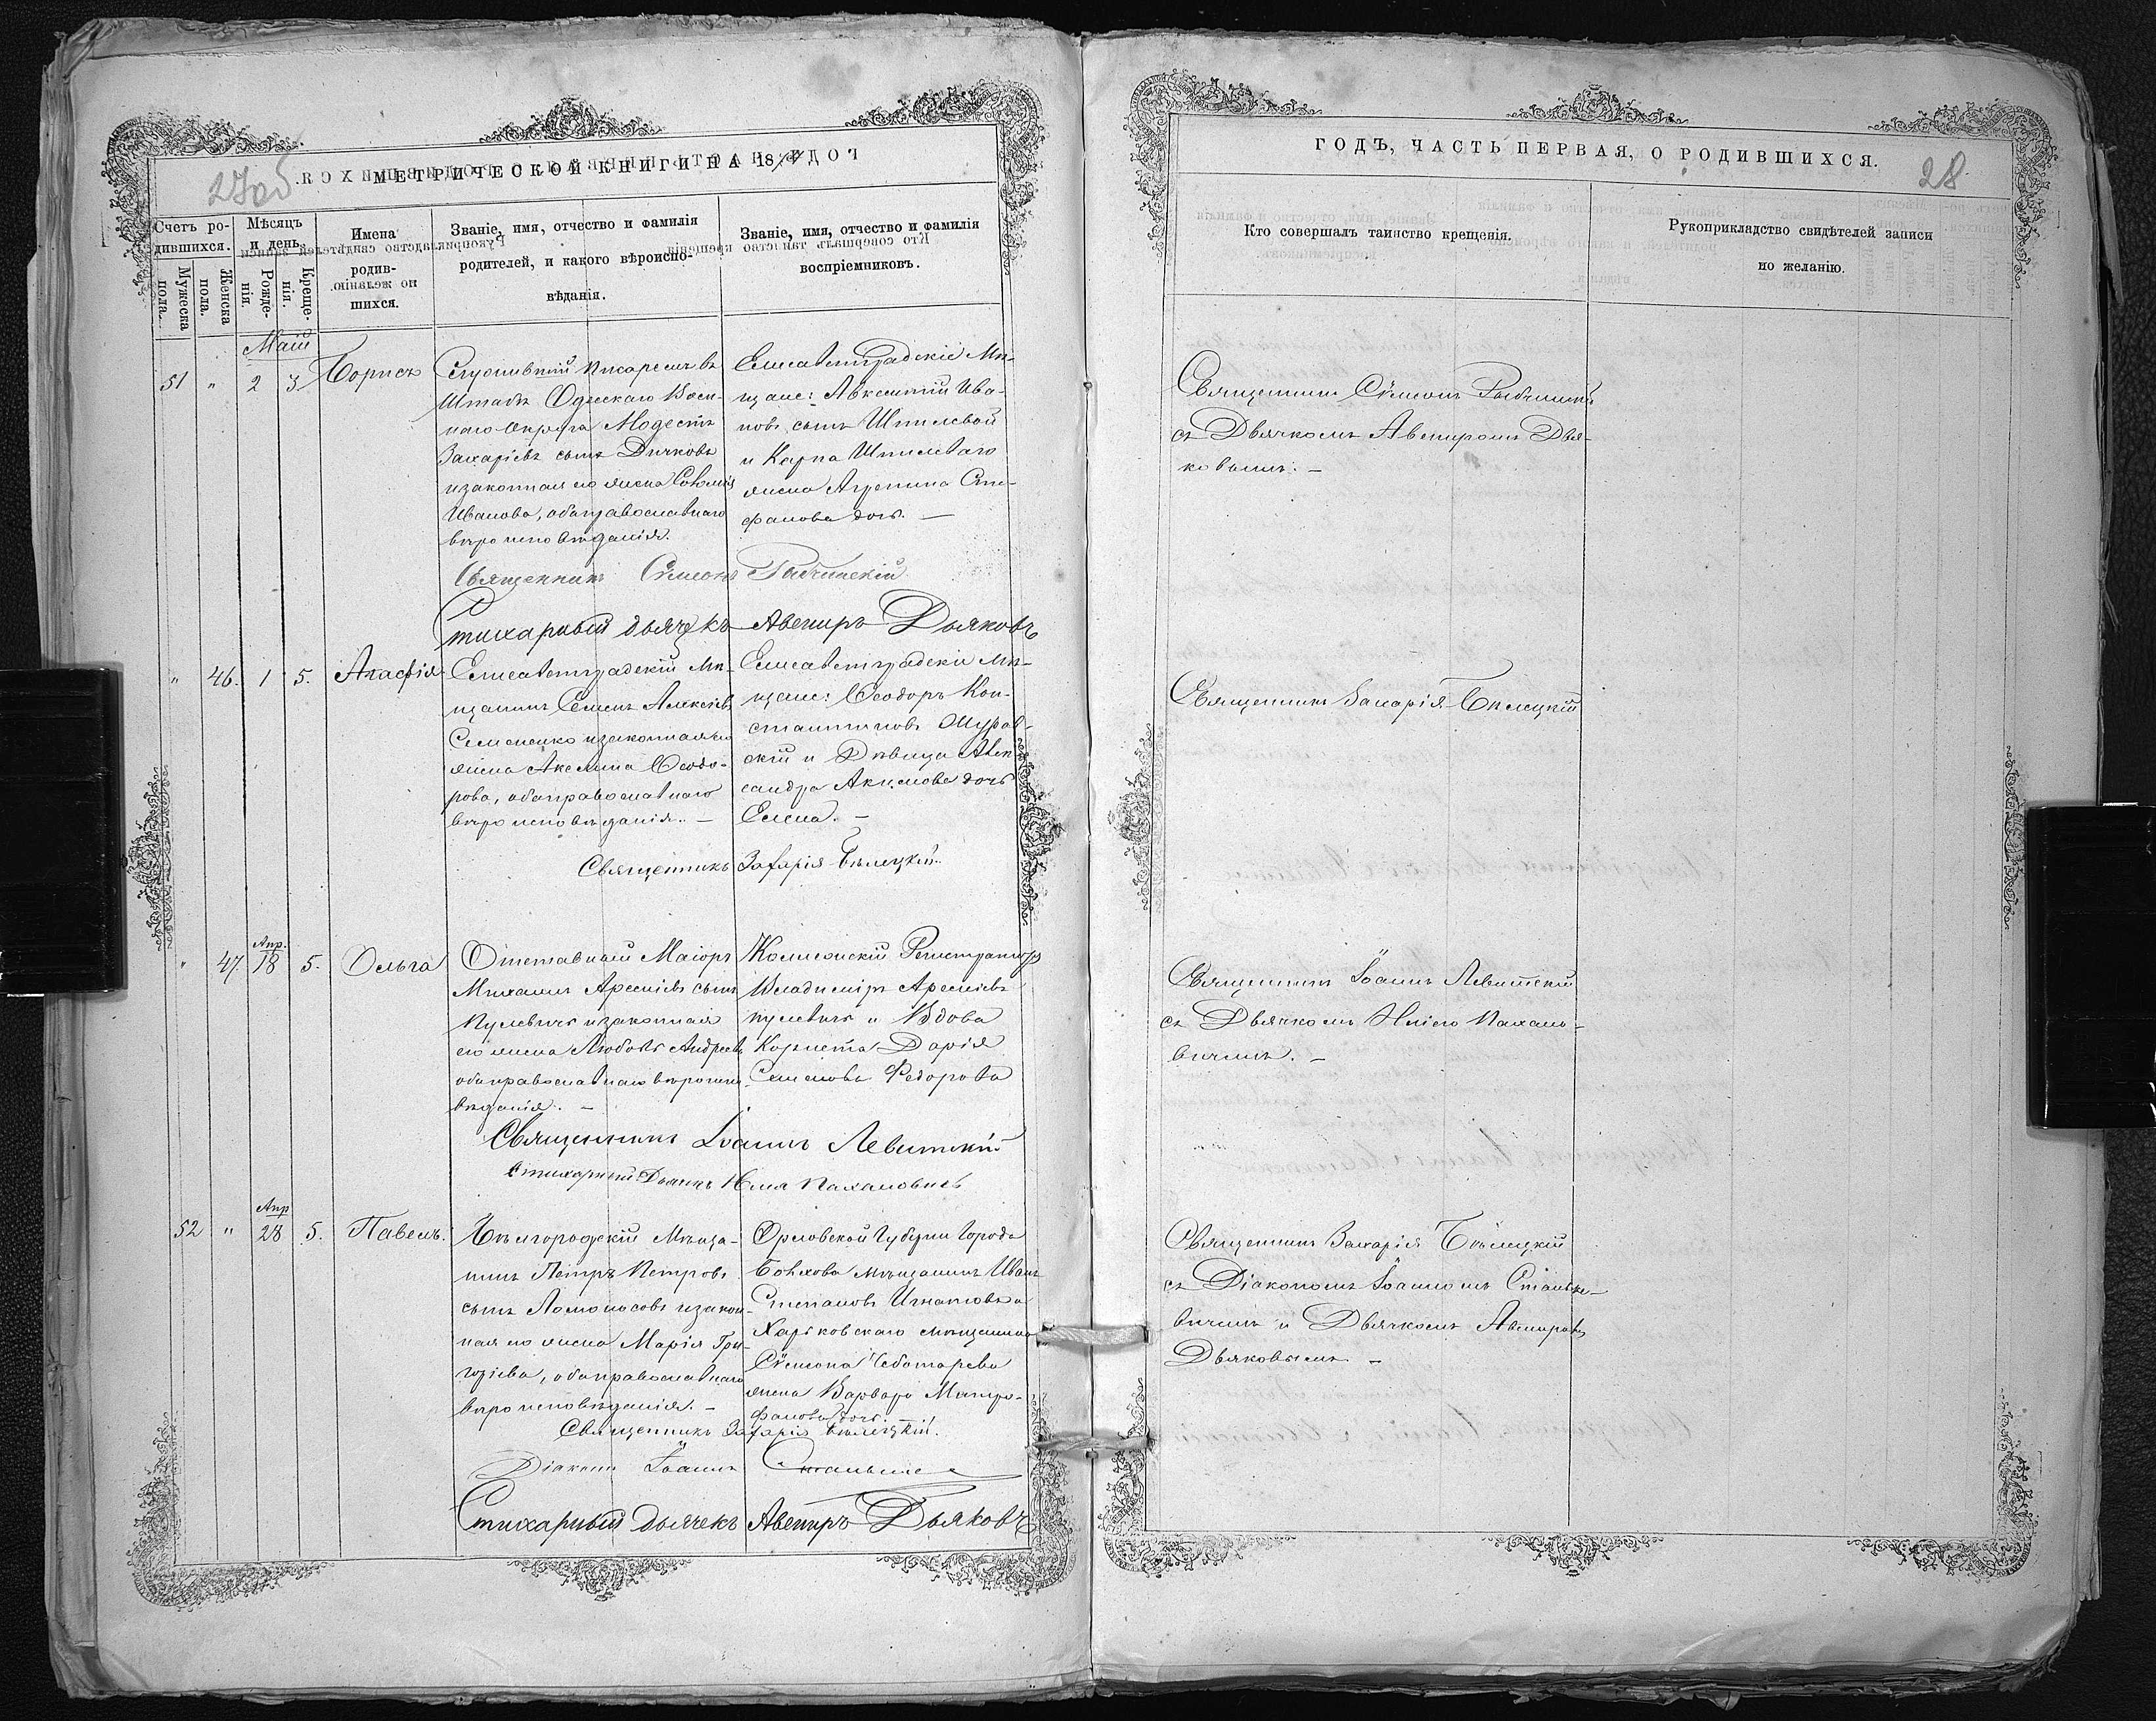 МЕТРИЧЕСКОЙ КНИГИ НА 18 ГОДЪ
27об
Счетъ ро-
дившихся.
Мужеска
пола.
Женска
пола.
Мѣсяцъ
и день.
Рожде-
нія.
Креще-
нія.
Имена
родив-
шихся.
Званіе, имя, отчество и фамилія
родителей, и какого вѣроиспо-
вѣданія.
Званіе, имя, отчество и фамилія
воспріемниковъ.
Май
51 " 2 3 Борисъ
Служившій писаремъ въ
Штабѣ Одесскаго Воен-
наго Округа Модестъ
Захаріевъ сынъ Дычковъ
и законная его жена Софія
Иванова, оба православнаго
вѣроисповѣданія.
Елисаветградскіе Мѣ-
щане: Авксентій Ива-
новъ сынъ Шпилевой
и Карпа Шпилеваго
жена Агрепина Сте-
фанова дочь. —
Священникъ Сѵмеонъ
Стихарный дьячекъ Авениръ Дьяковъ
" 46. 1 5. Агафія
Елисаветградскій Мѣ-
щанинъ Семенъ Алексѣевъ
Семененко и законная его
жена Акелина Ѳеодо-
рова, оба православнаго
вѣроисповѣданія. —
Елисаветградскіе Мѣ-
щане: Ѳеодоръ Кон-
стантиновъ Журав-
скій и Дѣвица Алек
сандра Акимова дочь
Священникъ Захарія Бѣлецкій
" 47. Апр. 18 5. Ольга
Отставный Маіоръ
Михаилъ Арсеніевъ сынъ
Кулевичъ и законная
его жена Любовь Андреев
оба православнаго вѣроиспо
вѣданія. —
Коллежскій Регистраторъ
Владиміръ Арсеніевъ
Кулевичъ и Вдова
Корнета Дарія
Семенова Федорова
Священникъ Іоаннъ Левитскій
Стихарный Дьячекъ Илія Пахаловичъ
52 " Апр 28 5. Павелъ.
Бѣлгородскій Мѣща-
нинъ Петръ Петровъ
сынъ Ломоносовъ и закон-
ная его жена Марія Гри-
горіева, оба православнаго
вѣроисповѣданія. —
Орловской Губерніи Города
Болхова мѣщанинъ Иванъ
Степановъ Игнатовъ и
Харьковскаго мѣщанина
Сѵмеона Чеботарева
жена Варвара Митро-
фанова дочь.
Священникъ Захарія Бѣлецкій.
Діаконъ Іоаннъ
Стихарный дьячекъ Авениръ Дьяковъ
ГОДЪ, ЧАСТЬ ПЕРВАЯ, О РОДИВШИХСЯ.
28
Кто совершалъ таинство крещенія.
Рукоприкладство свидѣтелей записи
по желанію.
Священникъ Сѵмеонъ
съ Дьячкомъ Авениромъ Дья-
ковымъ. —
Священникъ Захарія Бѣлецкій
Священникъ Іоаннъ Левитскій
съ Дьячкомъ Иліею Пахало-
вичемъ. —
Священникъ Захарія Бѣлецкій
съ Діакономъ Іоанномъ Станьке-
вичемъ и Дьячкомъ Авениромъ
Дьяковымъ. —